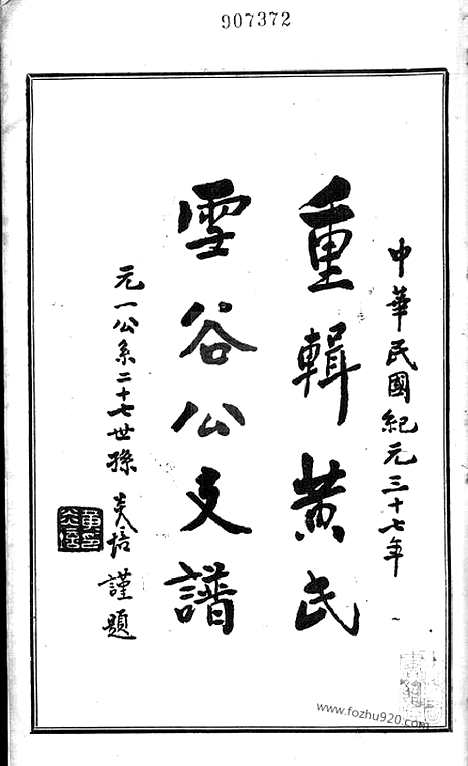 907372
中華民國紀元三十七年
重輯黄氏
雲谷公支譜
元一公系二十七世孫炎培謹題
www.fozhu920.com